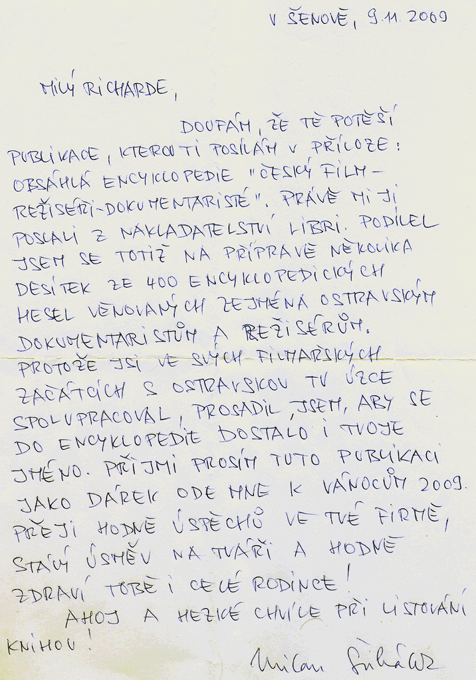 V ŠENOVĚ, 9.11.2009
MILÝ RICHARDE,
DOUFÁM, ŽE TĚ POTĚŠÍ
PUBLIKACE, KTEROU TI POSÍLÁM V PŘÍLOZE:
OBSÁHLÁ ENCYKLOPEDIE "ČESKÝ FILM –
REŽISÉŘI-DOKUMENTARISTÉ". PRÁVĚ MI JI
POSLALI Z NAKLADATELSTVÍ LIBRI. PODÍLEL
JSEM SE TOTIŽ NA PŘÍPRAVĚ NĚKOLIKA
DESÍTEK ZE 400 ENCYKLOPEDICKÝCH
HESEL VĚNOVANÝCH ZEJMÉNA OSTRAVSKÝM
DOKUMENTARISTŮM A REŽISÉRŮM.
PROTOŽE JSI VE SVÝCH FILMAŘSKÝCH
ZAČÁTCÍCH S OSTRAVSKOU TV ÚZCE
SPOLUPRACOVAL, PROSADIL JSEM, ABY SE
DO ENCYKLOPEDIE DOSTALO I TVOJE
JMÉNO. PŘIJMI PROSÍM TUTO PUBLIKACI
JAKO DÁREK ODE MNE K VÁNOCŮM 2009.
PŘEJI HODNĚ ÚSPĚCHŮ VE TVÉ FIRMĚ,
STÁLÝ ÚSMĚV NA TVÁŘI A HODNĚ
ZDRAVÍ TOBĚ I CELÉ RODINCE!
AHOJ A HEZKÉ CHVÍLE PŘI LISTOVÁNÍ
KNIHOU!
Milan